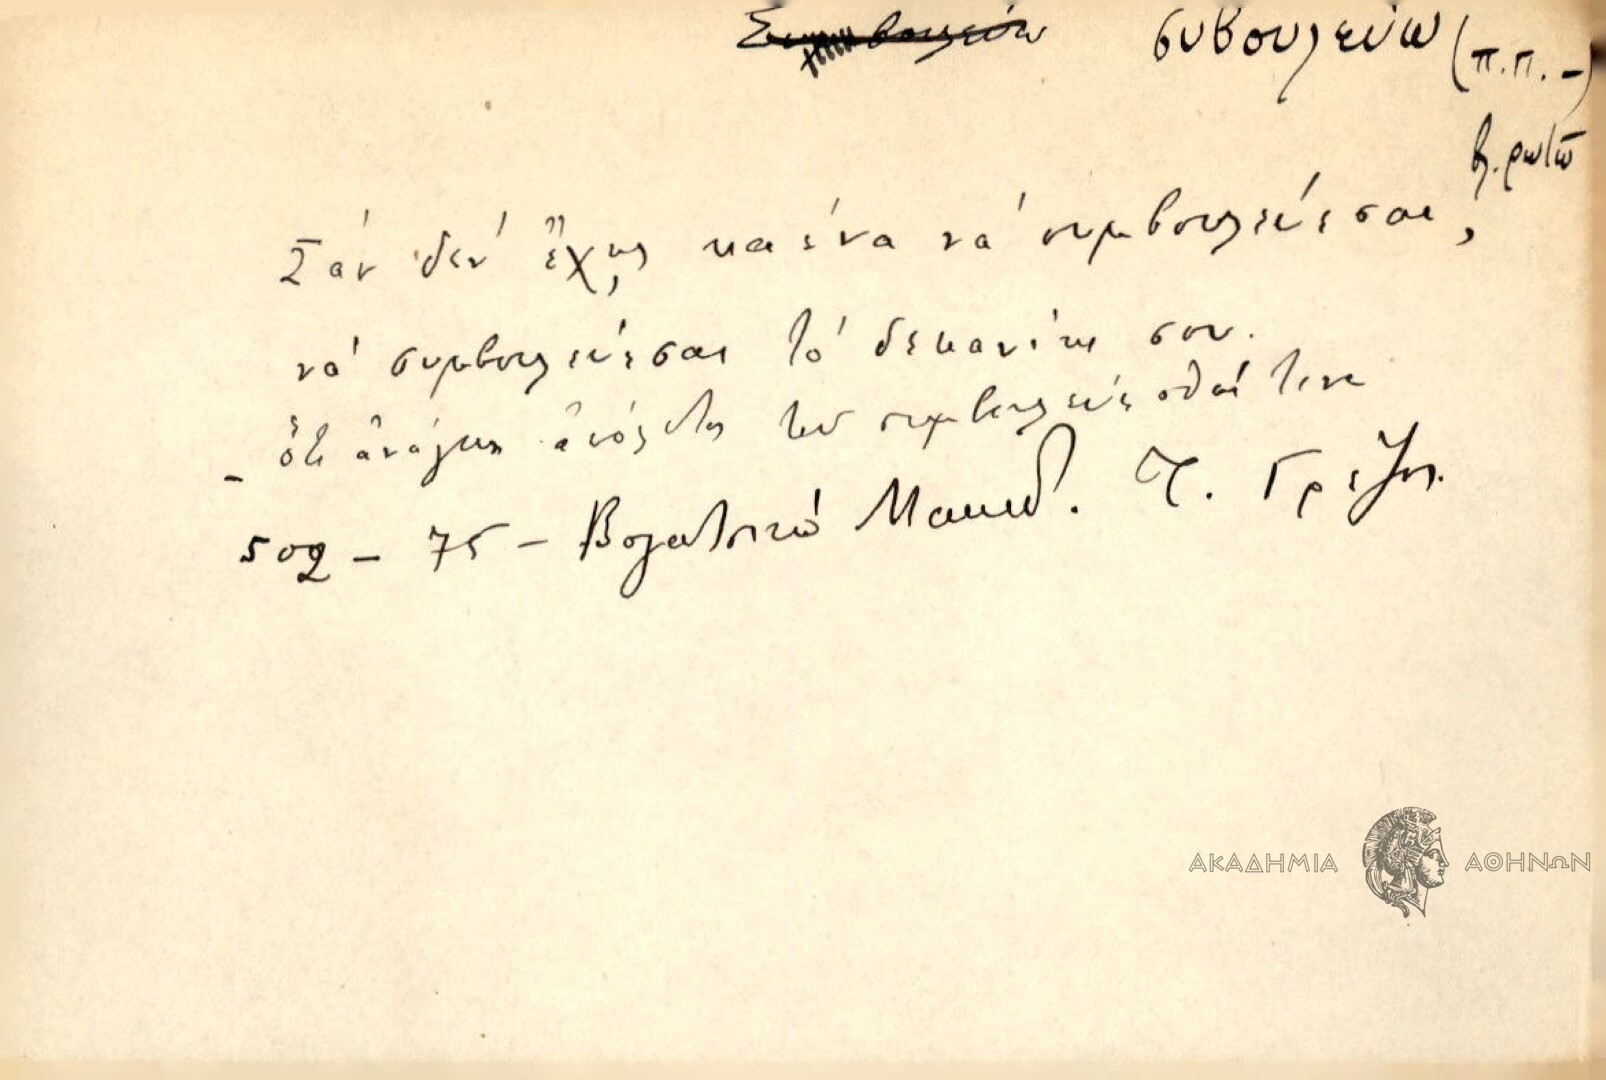 Συμβουλεύω συβουλεύω (π.π. -)
βλ. ρωτῶ
Σὰν δὲν ἔχῃς κα ἕνα νὰ συμβουλεύεσαι,
νὰ συμβουλεύεσαι τὸ δεκανίκι σου.
- ὅτι ἀνάγκη τοῦ συμβουλεύεσθαί τινα
502 - 75 - Βογατσικὸ Μακεδ. Τ. Γρεζη.
ΑΚΑΔΗΜΙΑ ΑΘΗΝΩΝ